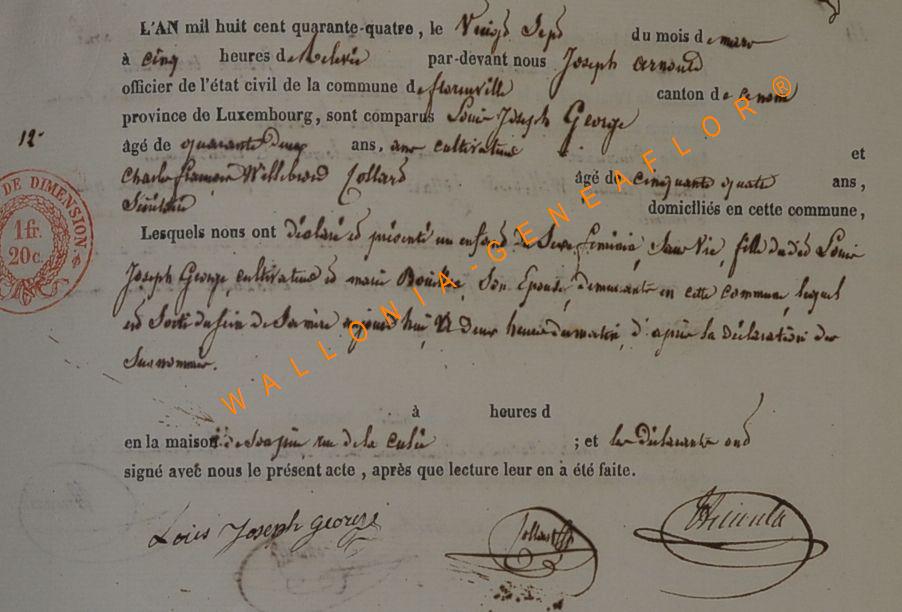 L'AN mil huit cent quarante-quatre, le Vingt Sept du mois de mars
à cinq heures de Relevée par-devant nous Joseph Arnould
officier de l'état civil de la commune de florenville canton de ce nom
province de Luxembourg, sont comparus Louis Joseph George
12
âgé de quarante deux ans, cultivateur et
Charles Willebrord Collard âgé de cinquante quatre ans,
domiciliés en cette commune,
DE DIMENSION
1 fr.
20 c.
Lesquels nous ont déclaré et présenté un enfant de Sexe féminin, Sans Vie, fille dudit Louis
Joseph George, cultivateur et marie Son Epouse, demeurante en cette commune, lequel
est Sorti du Sein de Sa mère aujourd'hui deux heures du matin, d'après la déclaration des
Susnommés.
à heures d
en la maison de son père rue de la ; et les déclarants ont
signé avec nous le présent acte, après que lecture leur en a été faite.
Louis Joseph George
Collard
WALLONIA-GENEAFLOR®